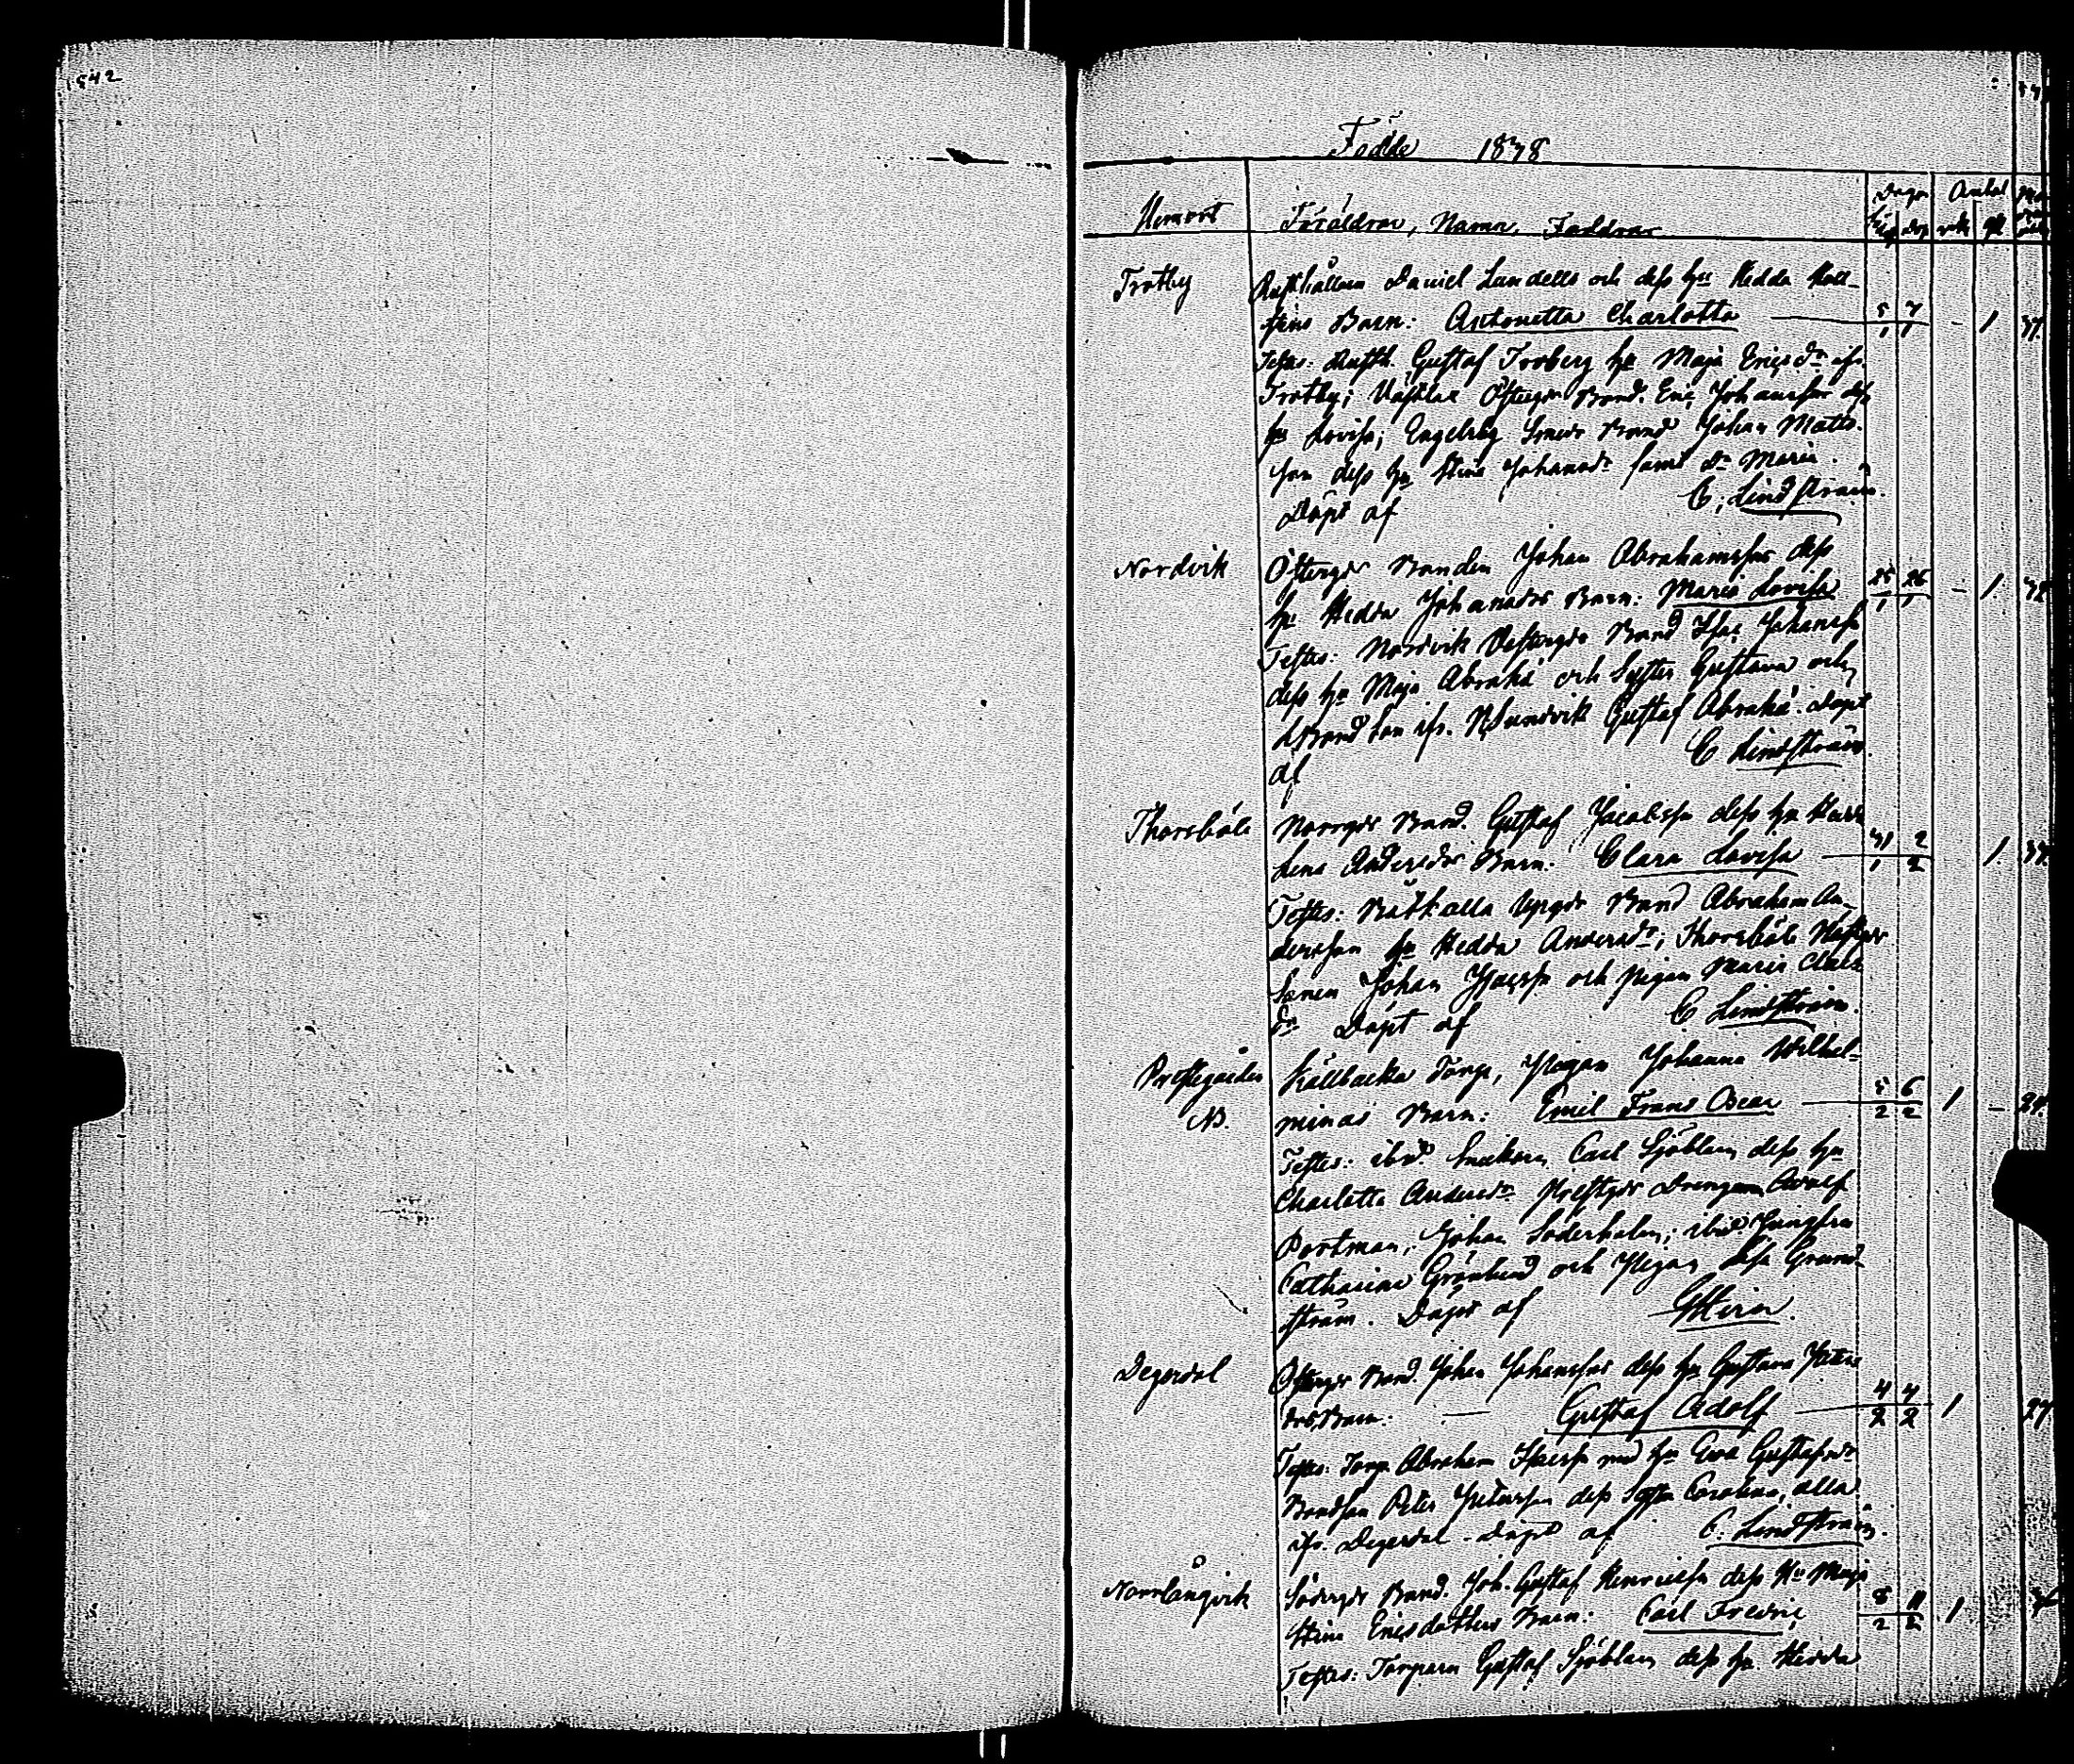 542
Födde 1838
Hemort Föräldrar, Namn, Faddrar Dager Antal
Trotby Rusthållarn Daniel Lundells och dess hu Hedda Hall-
stens Barn: Antonetta Charlotta 5/1 7/1 - 1 37
Testes: Rusth. Gustaf Froberg hu Maja Ericsdr ifr.
Trotby; Östergds Bond. Eric Johansson dess
hu Lovisa; Engelsby Smeds Bond Johan Matts-
son dess hu Stina Johansdr samt dr Maria.
Döpt af C. Lindström.
Nordvik Östergds Bonden Johan Abrahamsson dess
hu Hedda Johansdrs Barn: Maria Lovisa 25/1 26/1 - 1 32
Testes: Nordvik Vestergds Bond Isac Johansson
dess hu Maja Abrahd och Syster Gustava och
Bond son ifr. N. Sundvik Gustaf Abrahd. Döpt
af C Lindström
Thorsböle Norrgds Bond. Gustaf Jacobsson dess hu Hedda
Lena Andersdrs Barn: Clara Lovisa 31/1 2/2 1 37
Testes: Uppgds Bond Abraham An-
dersson hu Hedda Andersdr; Thorsböle
Sonen Johan Isacsson och pigan Maria
dr Döpt af C Lindström.
Prestegården Källbacka Torp, Pigan Johanna Wilhel-
NB. minas Barn: Emil Frans Oscar 5/2 6/2 1 -
Testes: ibid. Snickarn Carl Sjöblom dess hu
Charlotta Andersdr Prestgds Drengarna Adolf
Portman, Johan Söderholm; ibid. Jungfru
Catharina Grönlund och Pigan Lisa Grund-
ström. Döpt af
Degerdal Östergds Bond. Johan Johansson dess hu Gustava Peters
drs Barn: Gustaf Adolf 4/2 4/2 1 27
Testes: Torp. Abraham Isacsson med hu Eva Gustafsdr
Bondson Peter Petersson dess Syster Carolina, alla
ifr. Degerdal. Döpt af C. Lindström.
Norrlångvik Södergds Bond. Joh. Gustaf Henricsson dess Hu Maja
Stina Ericsdotters Barn: Carl Fredric 8/2 11/2 1
Testes: Torparn Gustaf Sjöblom dess hu Hedda